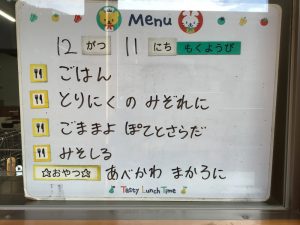 Menu
12 がつ 11 にち もくようび
ごはん
とりにく の みぞれに
ごままよ ぽてとさらだ
みそしる
☆おやつ☆ あべかわ まかろに
Tasty Lunch Time